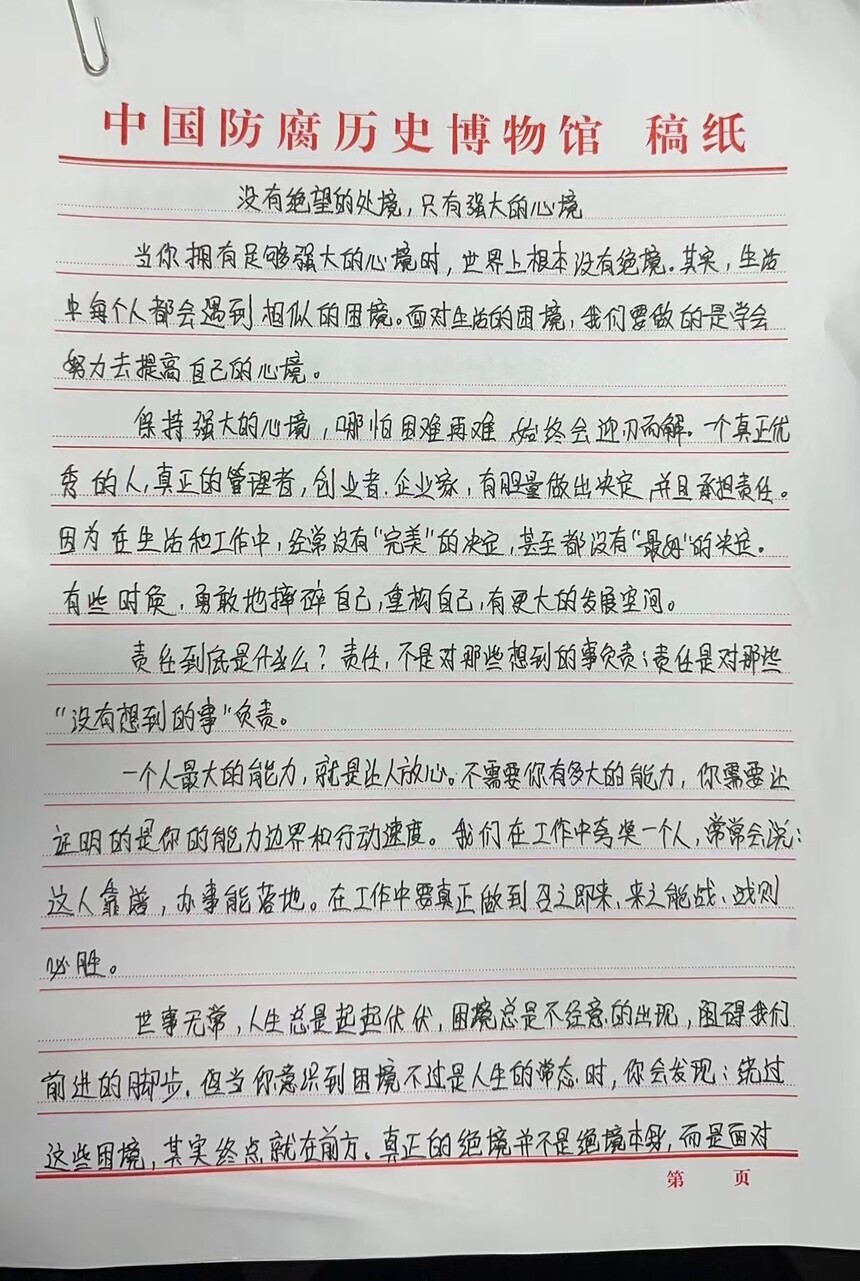 中国防腐历史博物馆 稿纸
没有绝望的处境，只有强大的心境
当你拥有足够强大的心境时，世界上根本没有绝境。其实，生活
中每个人都会遇到相似的困境。面对生活的困境，我们要做的是学会
努力去提高自己的心境。
保持强大的心境，哪怕困难再难，始终会迎刃而解。一个真正优
秀的人，真正的管理者，创业者、企业家，有胆量做出决定，并且承担责任。
因为在生活和工作中，经常没有“完美”的决定，甚至都没有“最好”的决定。
有些时候，勇敢地摔碎自己，重构自己，有更大的发展空间。
责任到底是什么？责任，不是对那些想到的事负责；责任是对那些
“没有想到的事”负责。
一个人最大的能力，就是让人放心。不需要你有多大的能力，你需要让
证明的是你的能力边界和行动速度。我们在工作中夸奖一个人，常常会说：
这人靠谱，办事能落地。在工作中要真正做到召之即来、来之能战、战则
必胜。
世事无常，人生总是起起伏伏，困境总是不经意的出现，阻碍我们
前进的脚步。但当你意识到困境不过是人生的常态时，你会发现：绕过
这些困境，其实终点就在前方。真正的绝境并不是绝境本身，而是面对
第 页